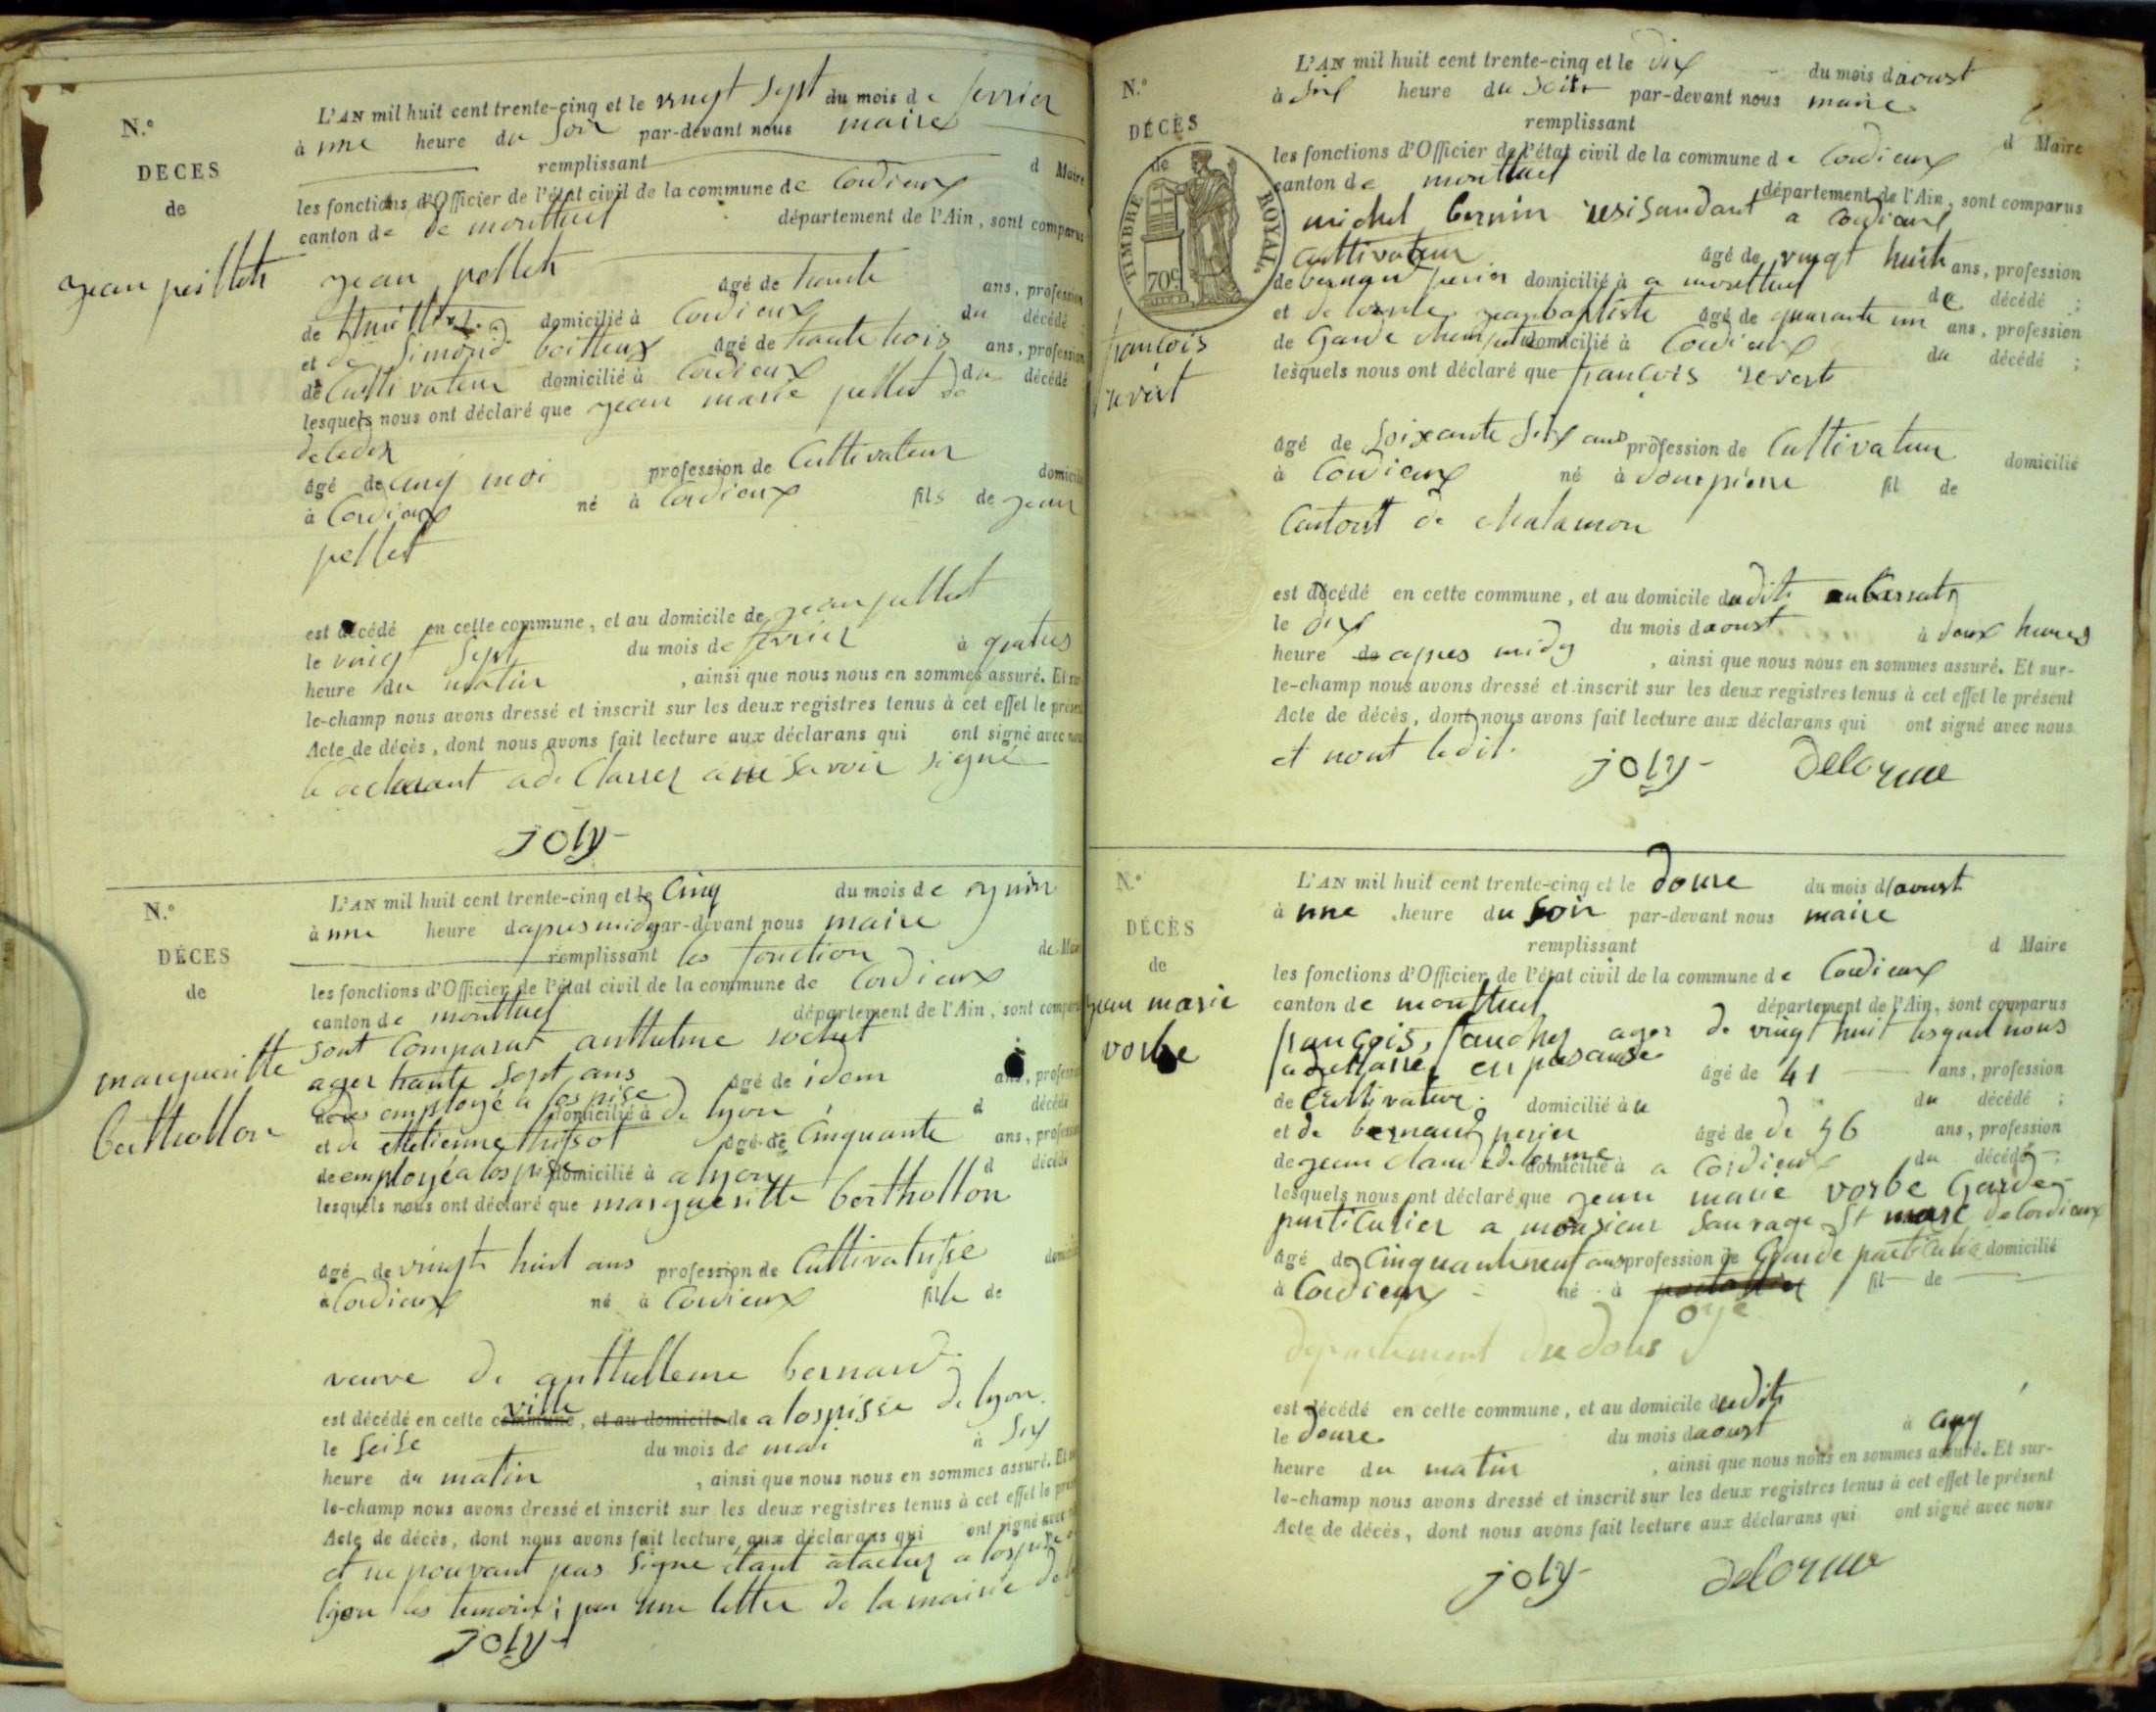 N.°
DECES
de
jean peillet
L'AN mil huit cent trente-cinq et le vingt sept du mois de fevrier
à une heure du soir par-devant nous maire
remplissant d Maire
les fonctions d'Officier de l'état civil de la commune de Cordieux
canton de de monttuel département de l'Ain, sont comparus
jean pellet âgé de trante ans, profession
de domicilié à Cordieux du décédé ;
et de Simond boitteux âgé de trante trois ans, profession
de Cultivateur domicilié à Cordieux du décédé
lesquels nous ont déclaré que jean marie pellet
agé de cinq moi profession de Cultivateur domicilié
à Cordieux né à Cordieux fils de jean
pellet
est décédé en cette commune, et au domicile de jean pellet
le vingt sept du mois de fevrier à quatres
heure du matin , ainsi que nous nous en sommes assuré. Et sur-
le-champ nous avons dressé et inscrit sur les deux registres tenus à cet effet le présent
Acte de décès, dont nous avons fait lecture aux déclarans qui ont signé avec nous
le declarant a de Clarrer a ne savoir signé
joly
N.°
DÉCES
de
margueritte
berthollon
L'AN mil huit cent trente-cinq et le Cinq du mois de juin
à une heure dapres midy par-devant nous maire
remplissant les fonction de Maire
les fonctions d'Officier de l'état civil de la commune de Cordieux
canton de monttuel département de l'Ain, sont comparus
sont comparut antthelme rochet
ager trante sept ans âgé de idem ans, profession
employé a lospise domicilié à de lyon d décédé
et de âgé de Cinquante ans, profession
de employé a lospise domicilié à a lyon d décédé
lesquels nous ont déclaré que margueritte berthollon
agé de vingt huit ans profession de Cultivatrise domicilié
a Cordieux né à Cordieux fille de
veuve de antthelleme bernard
est décédé en cette commune ville, et au domicile de a lospisse de lyon
le seise du mois de mai à six
heure du matin , ainsi que nous nous en sommes assuré. Et sur-
le-champ nous avons dressé et inscrit sur les deux registres tenus à cet effet le présent
Acte de décès, dont nous avons fait lecture aux déclarans qui ont signé avec nous
et ne pouvant pas signe étant atacher a lospise de
lyon les temoins ; par une letter de la mairie de
joly
N.°
DÉCÈS
de
TIMBRE ROYAL
70c
francois
revert
L'AN mil huit cent trente-cinq et le dix du mois daoust
à six heure du soir par-devant nous maire
remplissant d Maire
les fonctions d'Officier de l'état civil de la commune de Cordieux
canton de monttuel département de l'Ain, sont comparus
michel a Cordieux
Cultivateur âgé de vingt huit ans, profession
de domicilié à a monttuel de décédé ;
et de jean baptiste âgé de quarante un ans, profession
de Garde domicilié à Cordieux du décédé ;
lesquels nous ont déclaré que francois revert
agé de soixante ans profession de Cultivateur domicilié
à Cordieux né à dompierre fil de
Cantont de Chalamon
est décédé en cette commune, et au domicile dudit
le dix du mois daoust à deux heures
heure de apres midy , ainsi que nous nous en sommes assuré. Et sur-
le-champ nous avons dressé et inscrit sur les deux registres tenus à cet effet le présent
Acte de décès, dont nous avons fait lecture aux déclarans qui ont signé avec nous
et nont ledit.
joly delorme
N.°
DÉCÈS
de
jean marie
vorbe
L'AN mil huit cent trente-cinq et le douse du mois d'aoust
à une heure du soir par-devant nous maire
remplissant d Maire
les fonctions d'Officier de l'état civil de la commune de Cordieux
canton de monttuel département de l'Ain, sont comparus
françois ager de vingt huit lesquel nous
en presanse âgé de 41 ans, profession
de Cultivateur domicilié à du décédé ;
et de bernard perier âgé de de 56 ans, profession
de jean claude delorme domicilié à a Cordieux du décédé ;
lesquels nous ont déclaré que jean marie vorbe Garde
particulier a monsieur Sauvage St marc de Cordieux
agé de Cinquanteneuf ans profession de Garde particulier domicilié
à Cordieux né à oye fil de
departement du dous
est décédé en cette commune, et au domicile dudit
le douse du mois daoust à cinq
heure du matin , ainsi que nous nous en sommes assuré. Et sur-
le-champ nous avons dressé et inscrit sur les deux registres tenus à cet effet le présent
Acte de décès, dont nous avons fait lecture aux déclarans qui ont signé avec nous
joly delorme